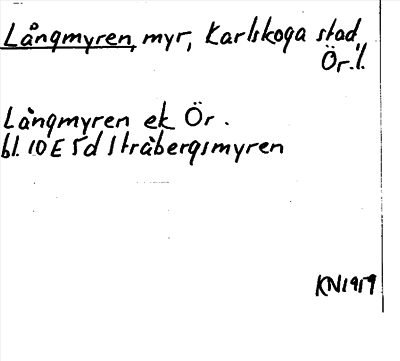 Långmyren, myr, Karlskoga stad,
Ör. l.
Långmyren ek Ör.
bl. 10E 5d Stråbergsmyren
KN1959